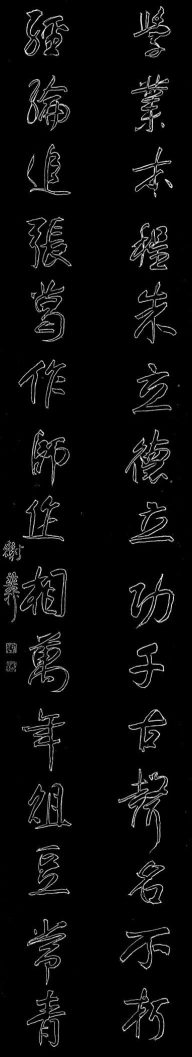 學業本程朱立德立功千古聲名不朽
經綸追張葛作師作相萬年俎豆常青